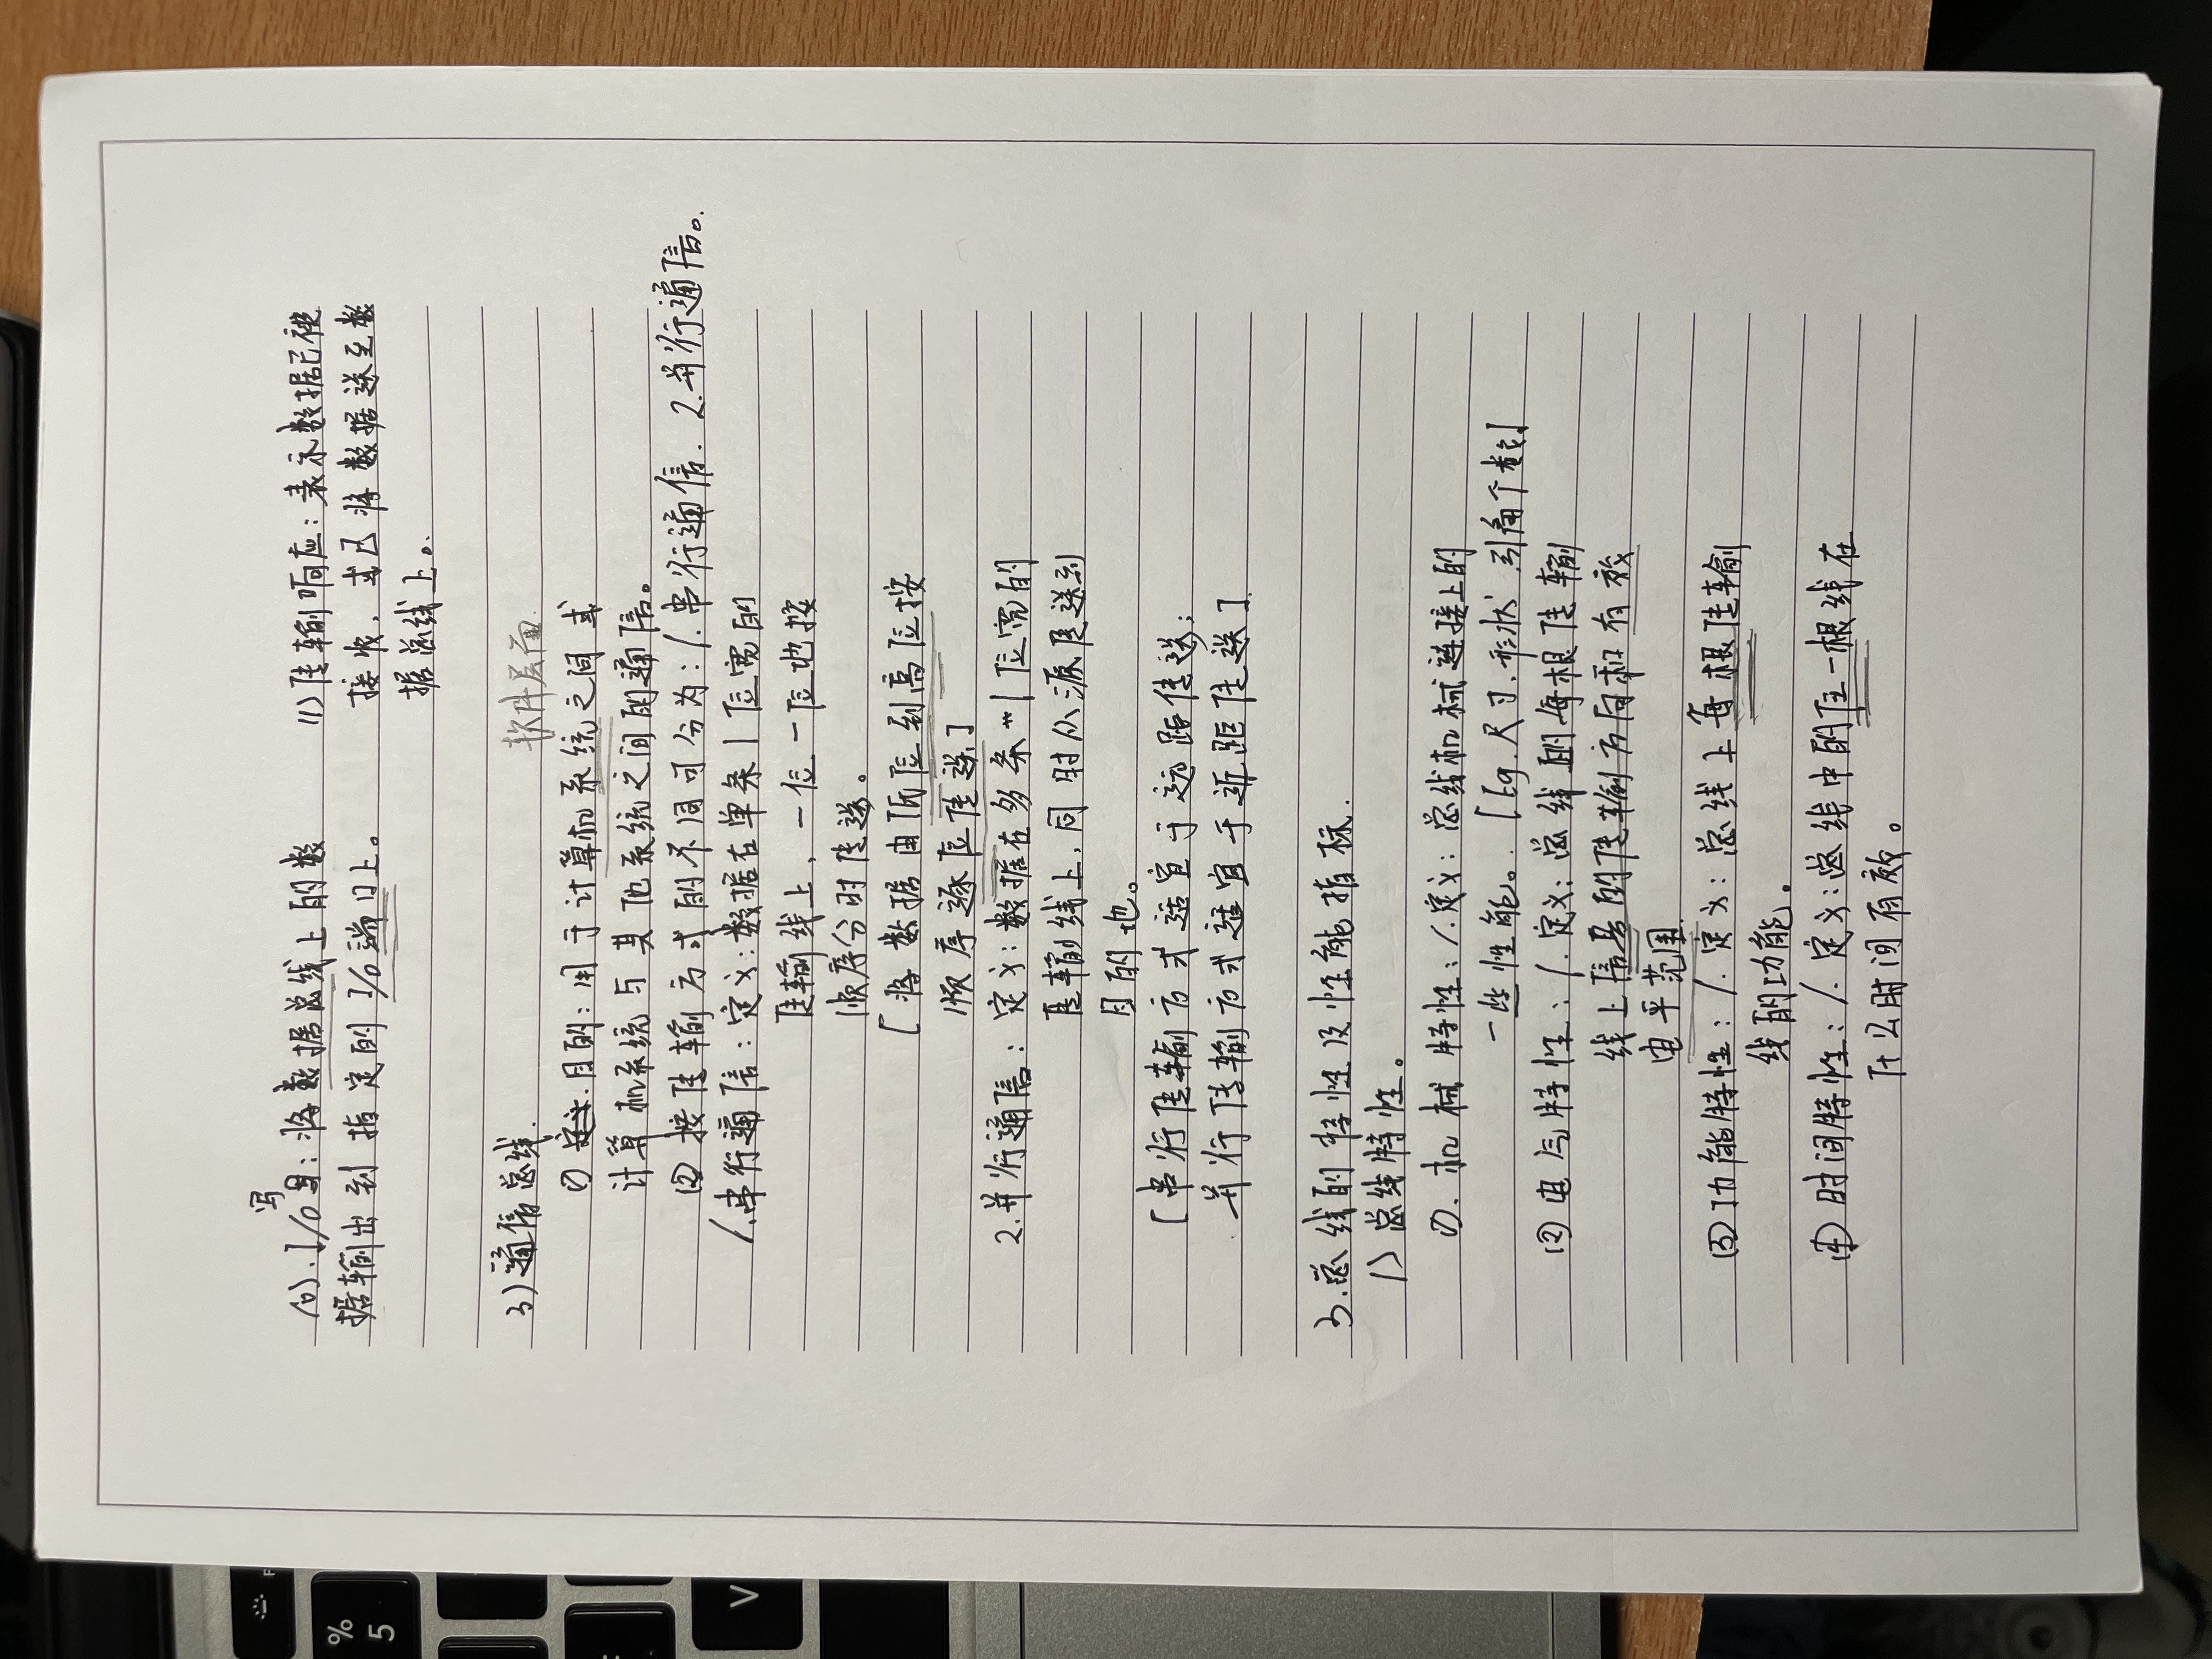 写
10). I/O写: 将数据总线上的数
据输出到指定的I/O端口上。
11) 传输响应: 表示数据已被
接收, 或已将数据送至数
据总线上。
3) 通信总线.
软件层面.
① 目的: 用于计算机系统之间或
计算机系统与其他系统之间的通信。
② 按传输方式的不同可分为: 1. 串行通信. 2. 并行通信。
1. 串行通信: 定义: 数据在单条1位宽的
传输线上, 一位一位地按
顺序分时传送。
[将数据由低位到高位按
顺序逐位传送]
2. 并行通信: 定义: 数据在多条1位宽的
传输线上, 同时从源传送到
目的地。
[串行传输方式适宜于远距传送;
并行传输方式适宜于近距传送]
3. 总线的特性及性能指标.
1) 总线特性。
①. 机械特性: 1. 定义: 总线机械连接上的
一些性能。. [Eg. 尺寸、形状、引角个数]
② 电气特性: 1. 定义: 总线的每根传输
线上信号的传输方向和有效
电平范围.
③ 功能特性: 1. 定义: 总线上每根传输
线的功能。
④ 时间特性: 1. 定义: 总线中的任一根线在
什么时间有效。
%
5
F
V